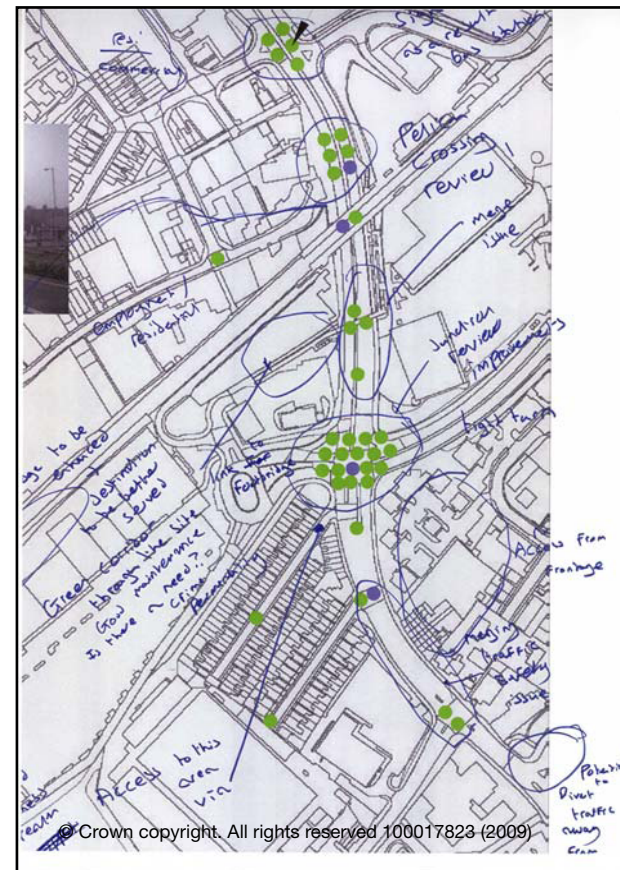 Res.
commercial
Sign
as a result
bus station
Pelican
crossing
review
merge
issue
employment /
residential
Junction
review
improvements
right turn
link to
footbridge
to be
enhanced
Destination
to be better
served
Green corridor
through the site
Good maintenance
Is there a need??
crime
Permeability
Access from
Frontage
Merging
traffic
safety
issue
Access to this
area
via
realm
to
Divert
traffic
away
from
© Crown copyright. All rights reserved 100017823 (2009)